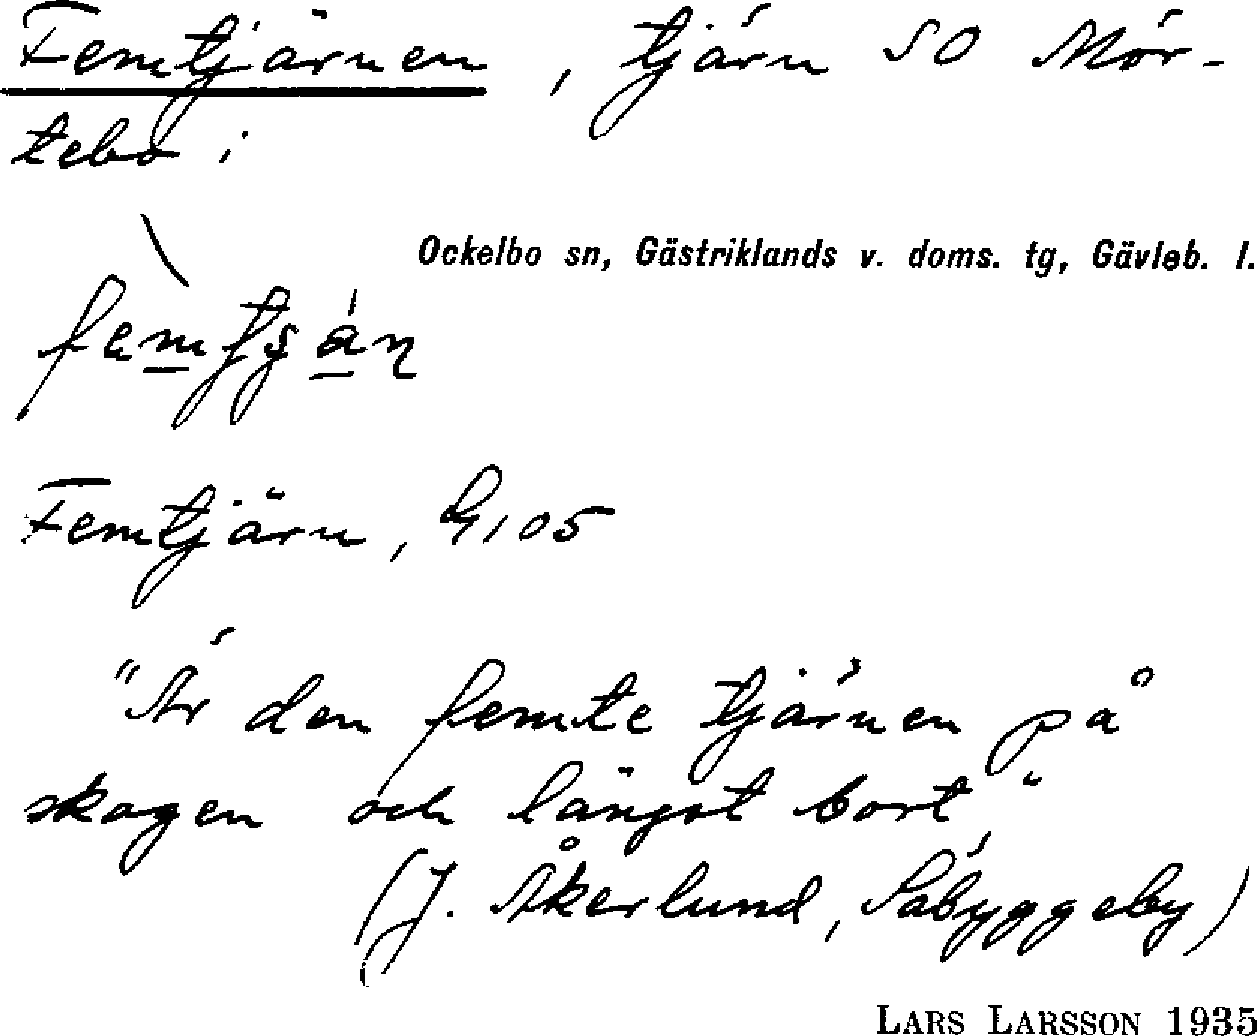 Femtjärnen, tjärn SO Mör-
tebo i
Ockelbo sn, Gästriklands v. doms. tg, Gävleb. l.
Femtjärn, G105
"Är den femte tjärnen på
skogen och längst bort"
(J. Åkerlund, Säbyggeby)
LARS LARSSON 1935